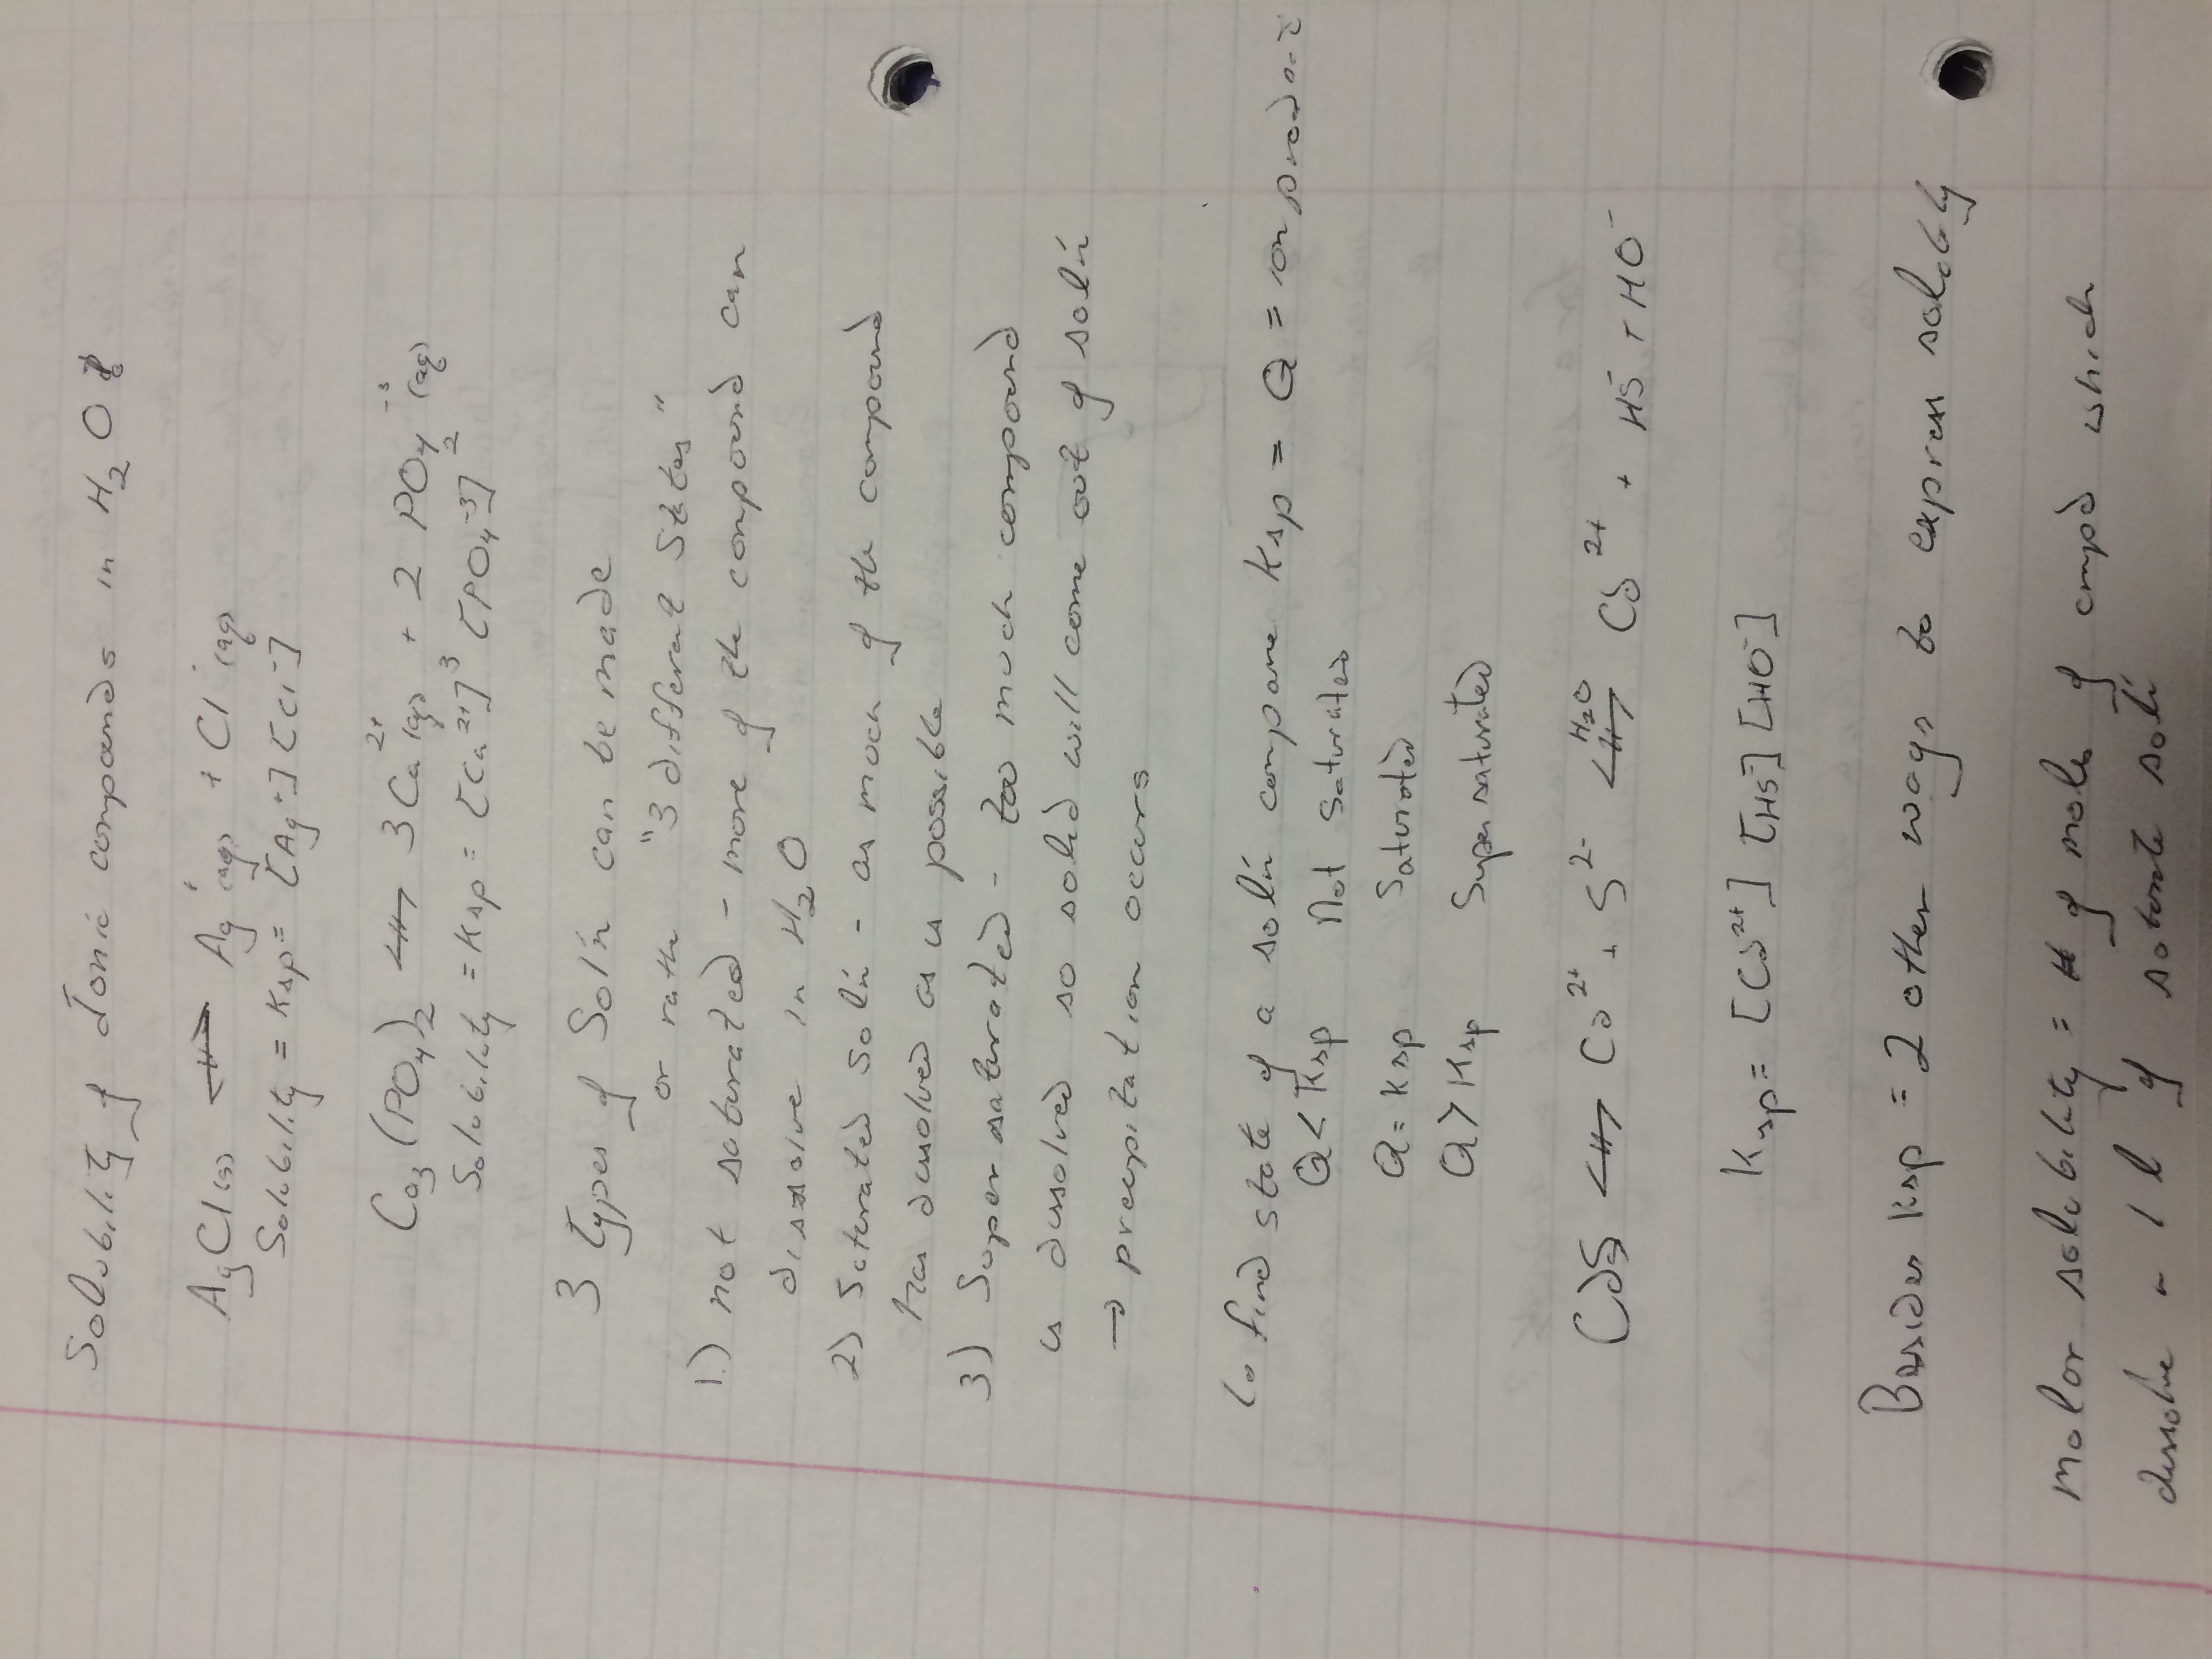 Solubility of Ionic compounds in H2O
AgCl(s) <-> Ag+(aq) + Cl-(aq)
Solubility = Ksp = [Ag+][Cl-]
Ca3(PO4)2 <-> 3Ca2+(aq) + 2 PO4-3(aq)
Solubility = Ksp = [Ca2+]3 [PO4-3]2
3 types of Sol'n can be made
or rath "3 different states"
1.) not saturated - more of the compound can
dissolve in H2O
2) Saturated Sol'n - as much of the compound
has dissolved as is possible
3) Super saturated - too much compound
is dissolved so solid will come out of sol'n
→ precipitation occurs
to find state of a sol'n compare Ksp = Q = ion
Q < Ksp Not saturated
Q = Ksp Saturated
Q > Ksp Super saturated
CdS <-> Cd2+ + S2- <-H2O-> Cd2+ + HS- + HO-
Ksp = [Cd2+] [HS-] [HO-]
Besides Ksp = 2 other ways to express solubility
molar solubility = # of moles of cmpd which
dissolve in 1 l of saturate sol'n